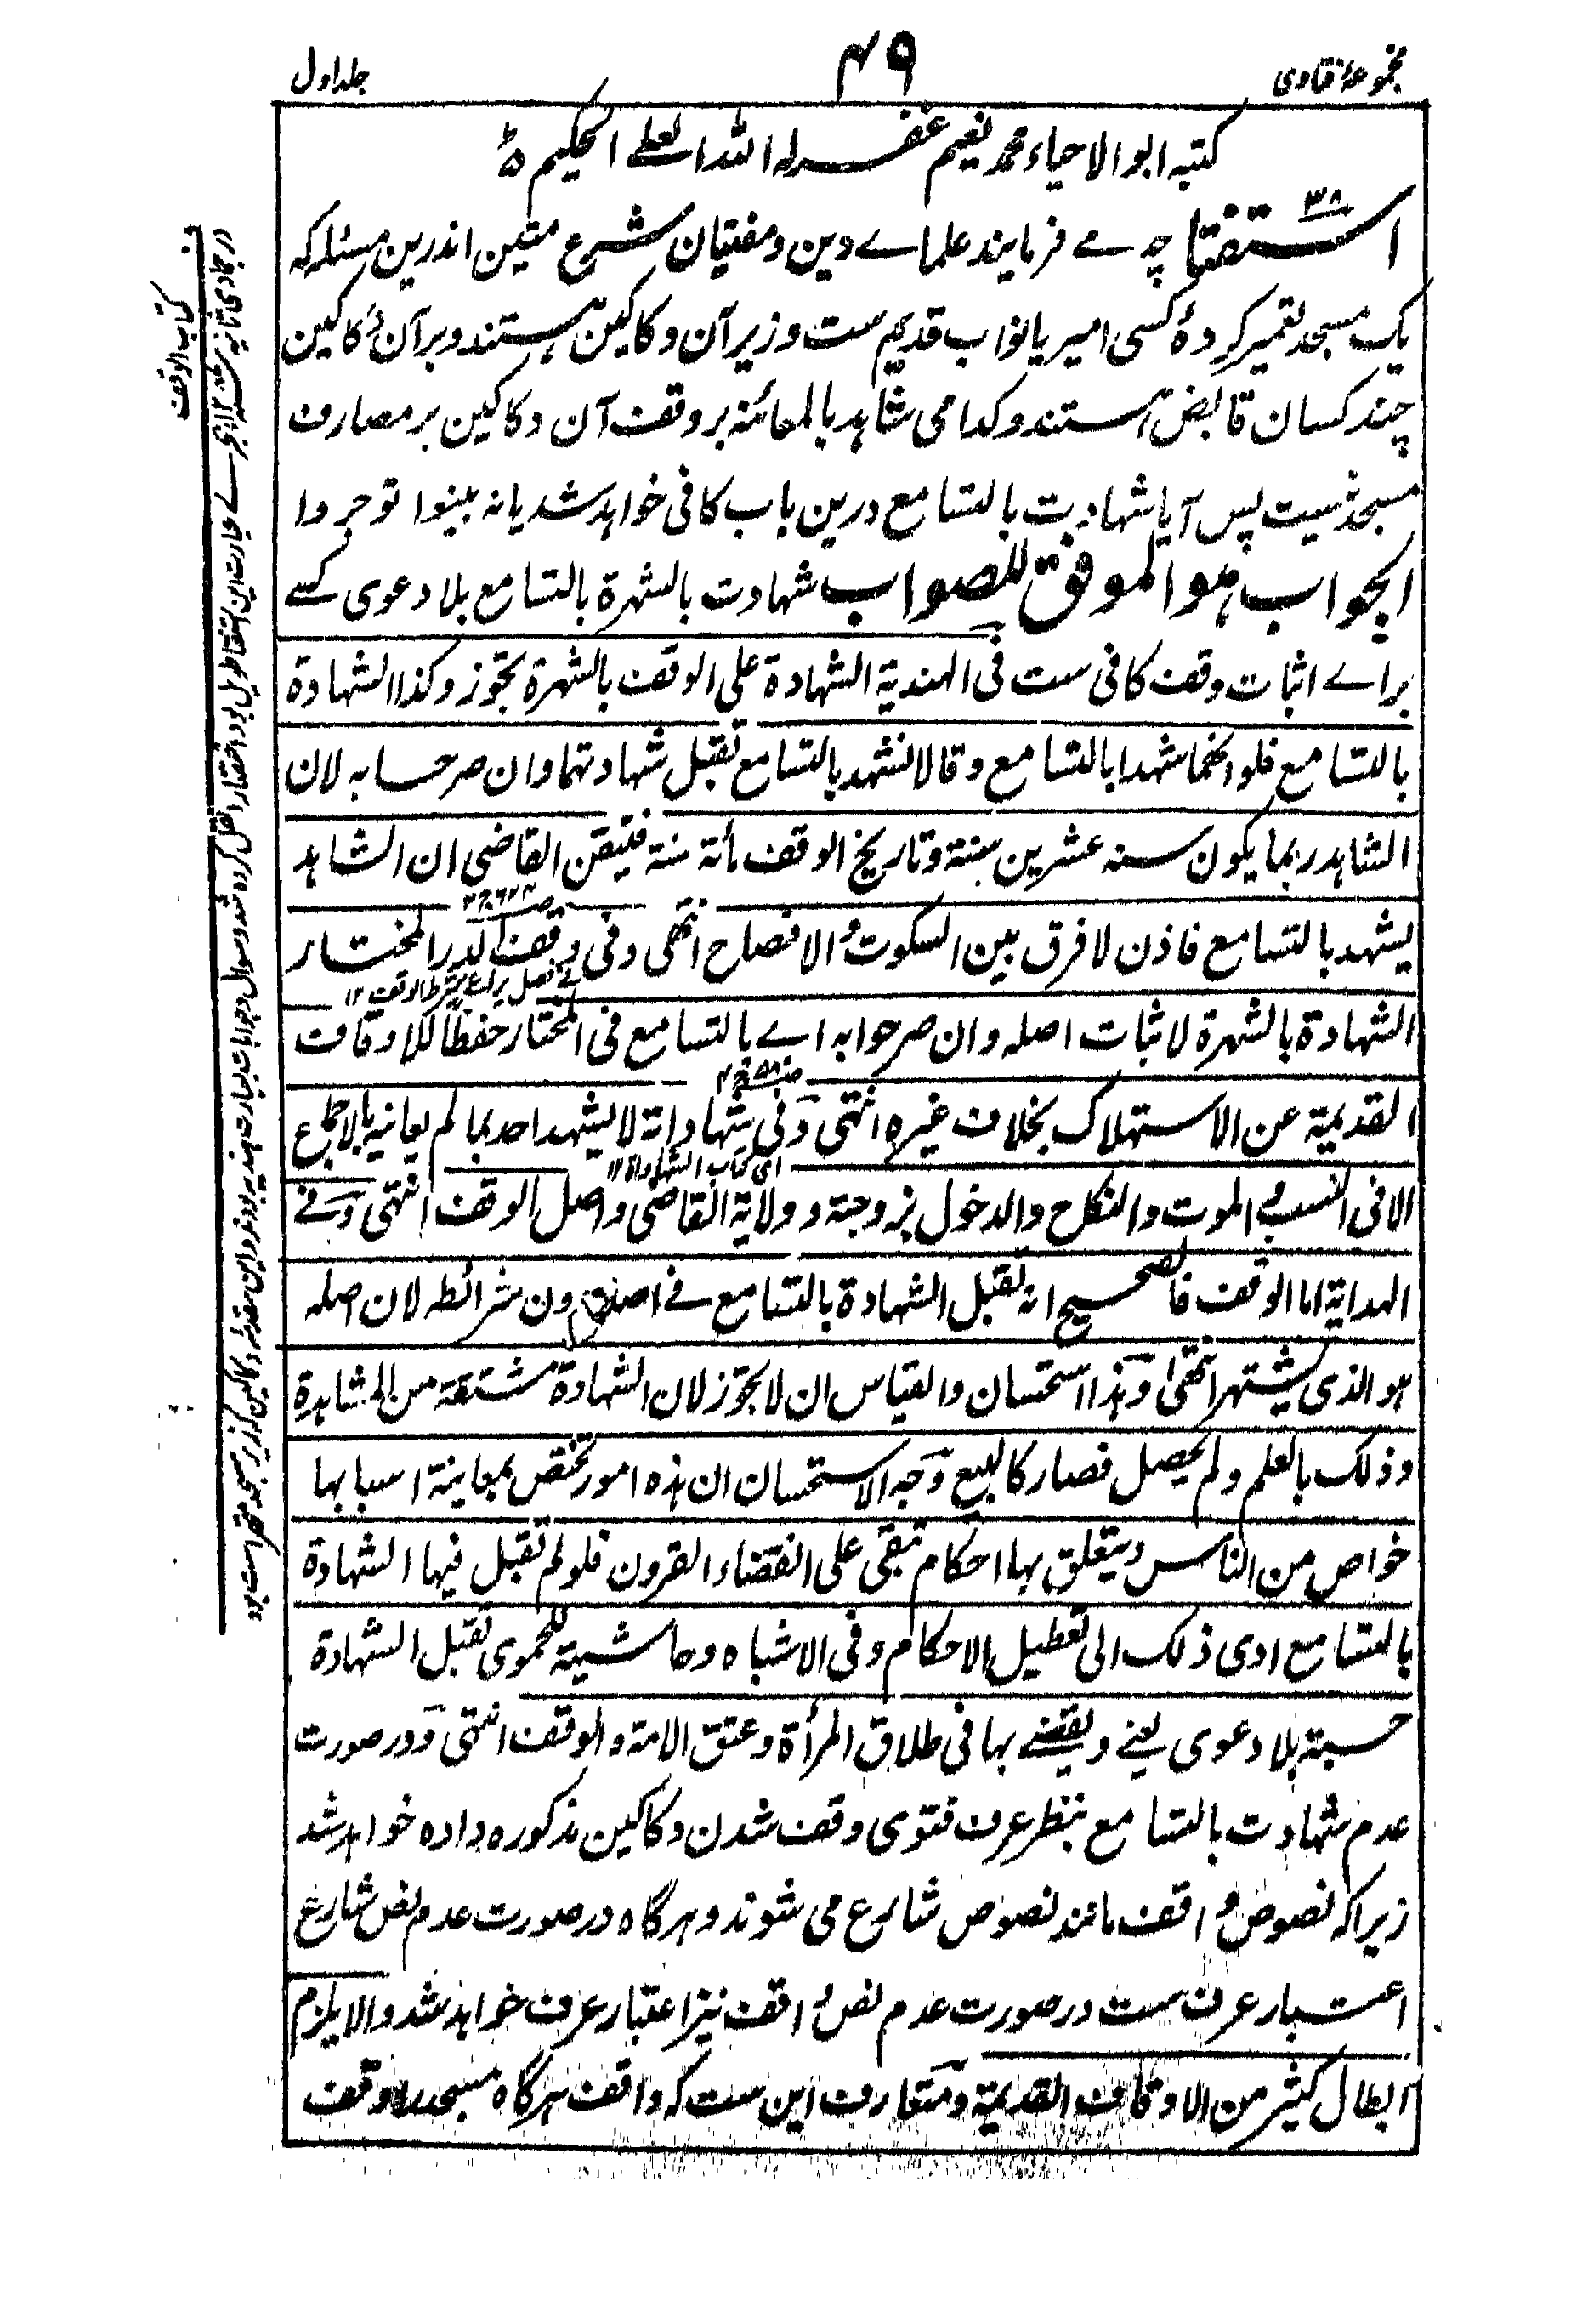 مجموعۂ فتاوی
۴۹
جلد اول
کتبہ ابو الاحیاء محمد نعیم غفر لہ اللہ العلے الحکیم
۳۸
استفتا چہ مے فرمایند علماے دین و مفتیان شرع متین اندرین مسئلہ کہ
یک مسجد تعمیر کردۂ کسی امیر یا نواب قدیم ست و زیر آن دکاکین ہستند و بر آن دکاکین
چند کسان قابض ہستند و کدامی شاہد بالمعائنہ بر وقف آن دکاکین بر مصارف
مسجد نیست پس آیا شہادت بالتسامع درین باب کافی خواہد شد یا نہ بینوا توجروا
الجواب ہو الموفق للصواب شہادت بالشہرۃ بالتسامع بلا دعوی کسے
براے اثبات وقف کافی ست فی الہندیۃ الشہادۃ علی الوقف بالشہرۃ تجوز وکذا الشہادۃ
بالتسامع فلو انھما شہدا بالتسامع وقالا نشہد بالتسامع تقبل شہادتہما وان صرحا بہ لان
الشاہد ربما یکون سنہ عشرین سنۃ وتاریخ الوقف مائۃ سنۃ فتیقن القاضی ان الشاہد
یشہد بالتسامع فاذن لا فرق بین السکوت والافصاح انتھی وفی وقف الدر المختار
فے فصل یراعی شرط الواقف ۱۲
الشہادۃ بالشہرۃ لاثبات اصلہ وان صرحوا بہ اے بالتسامع فی المختار حفظا للاوقاف
القدیمۃ عن الاستہلاک بخلاف غیرہ انتھی وفی شہاداتہ لا یشہد احد بما لم یعاینہ بالاجماع
ای کتاب الشہادۃ ۱۲
الا فی النسب والموت والنکاح والدخول بزوجتہ وولایۃ القاضی واصل الوقف انتھی وفے
الہدایۃ اما الوقف فالصحیح انہ تقبل الشہادۃ بالتسامع فے اصلہ دون شرائطہ لان اصلہ
ہو الذی یشتہر انتھی وہذا استحسان والقیاس ان لا تجوز لان الشہادۃ مشتقۃ من المشاہدۃ
وذلک بالعلم ولم یحصل فصار کالبیع وجہ الاستحسان ان ہذہ امور تختص بمعاینۃ اسبابہا
خواص من الناس ویتعلق بہا احکام تبقی علی انقضاء القرون فلو لم تقبل فیہا الشہادۃ
بالتسامع ادی ذلک الی تعطیل الاحکام وفی الاشباہ وحاشیۃ للحموی تقبل الشہادۃ
حسبۃ بلا دعوی یعنے ویقضے بہا فی طلاق المرأۃ وعتق الامۃ والوقف انتھی و در صورت
عدم شہادت بالتسامع بنظر عرف فتوی وقف شدن دکاکین مذکورہ دادہ خواہد شد
زیرا کہ نصوص واقف مانند نصوص شارع می شوند و ہر گاہ در صورت عدم نص شارع
اعتبار عرف ست در صورت عدم نص واقف نیز اعتبار عرف خواہد شد والا یلزم
ابطال کثیر من الاوقاف القدیمۃ و متعارف این ست کہ واقف ہر گاہ مسجد را وقف
کتاب الوقف